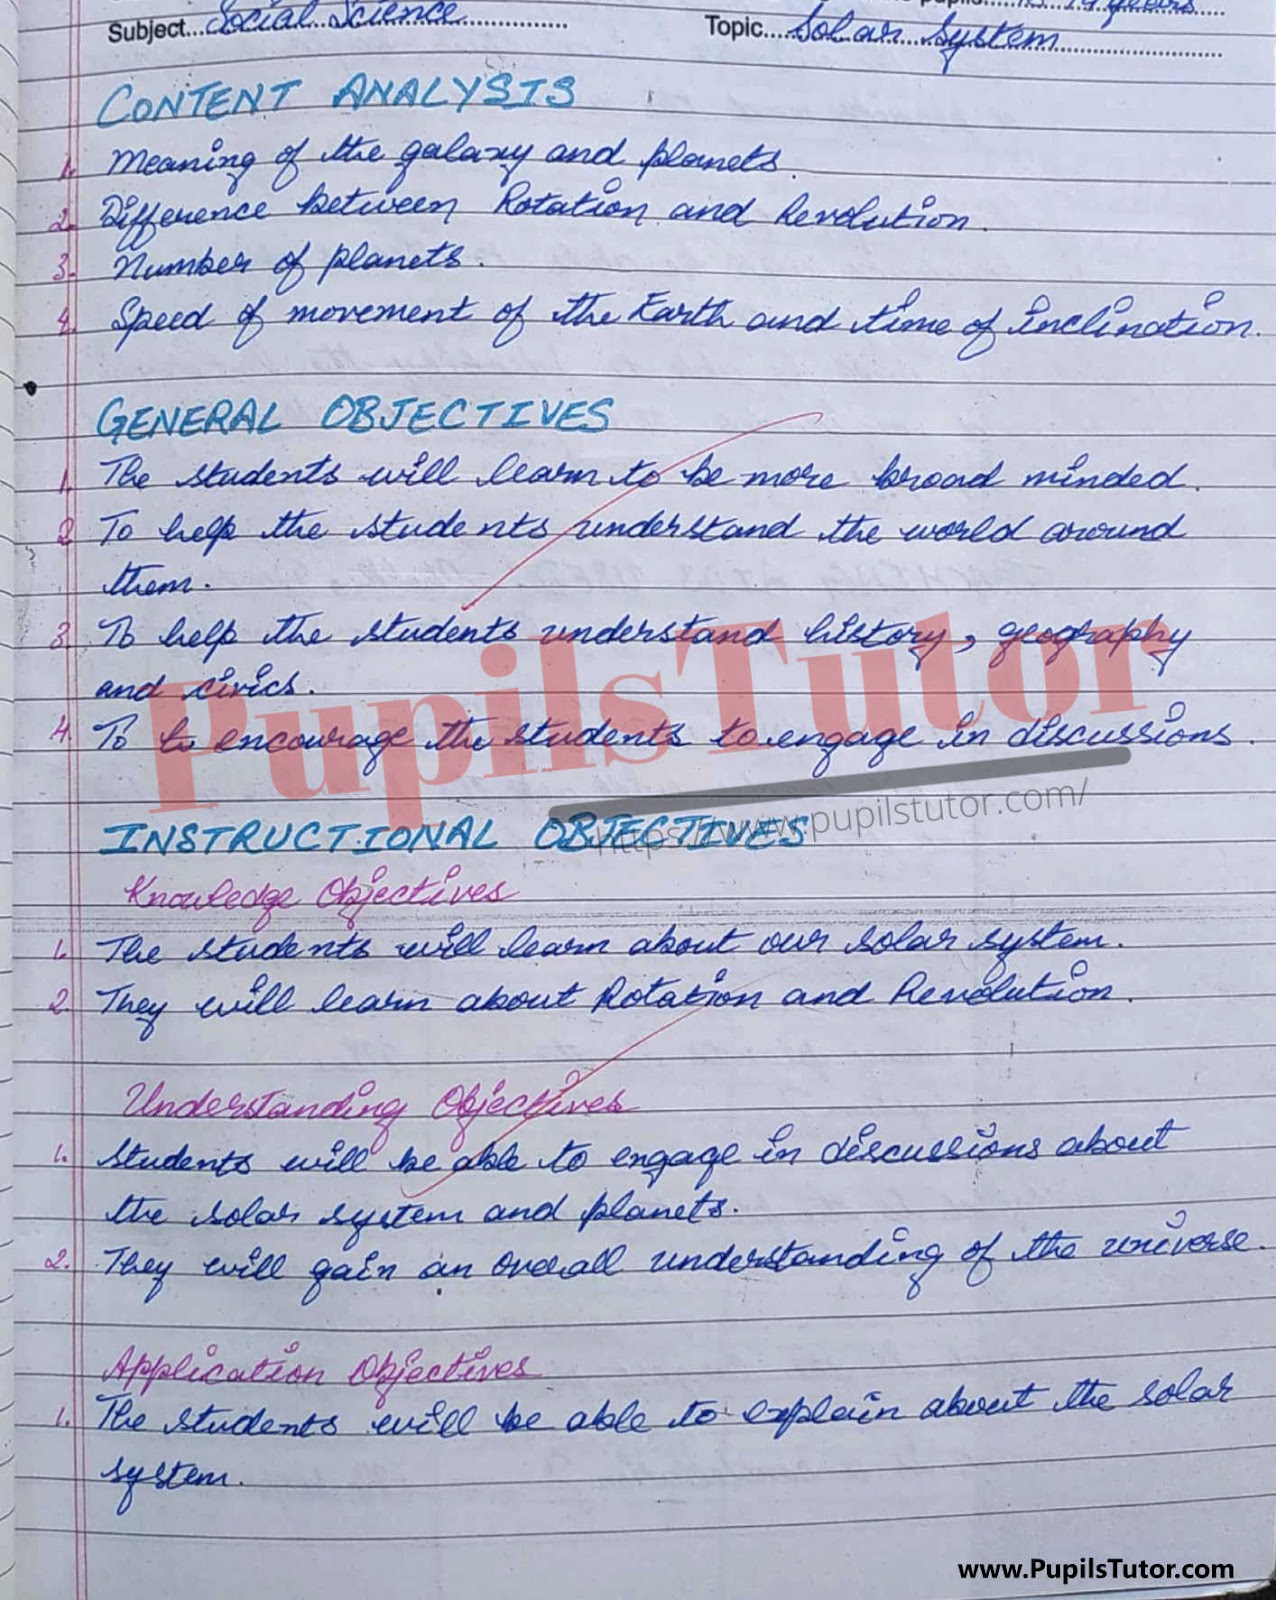 pupils....13-14 years
Subject...Social Science............... Topic....Solar System...............
CONTENT ANALYSIS
1. Meaning of the galaxy and planets.
2. Difference between Rotation and Revolution.
3. Number of planets.
4. Speed of movement of the Earth and time of inclination.
GENERAL OBJECTIVES
1. The students will learn to be more broad minded.
2. To help the students understand the world around
them.
3. To help the students understand history, geography
and civics.
4. To encourage the students to engage in discussions.
PupilsTutor
https://www.pupilstutor.com/
INSTRUCTIONAL OBJECTIVES
Knowledge Objectives
1. The students will learn about our solar system.
2. They will learn about Rotation and Revolution.
Understanding Objectives
1. Students will be able to engage in discussions about
the solar system and planets.
2. They will gain an overall understanding of the universe.
Application Objectives
1. The students will be able to explain about the solar
system.
www.PupilsTutor.com